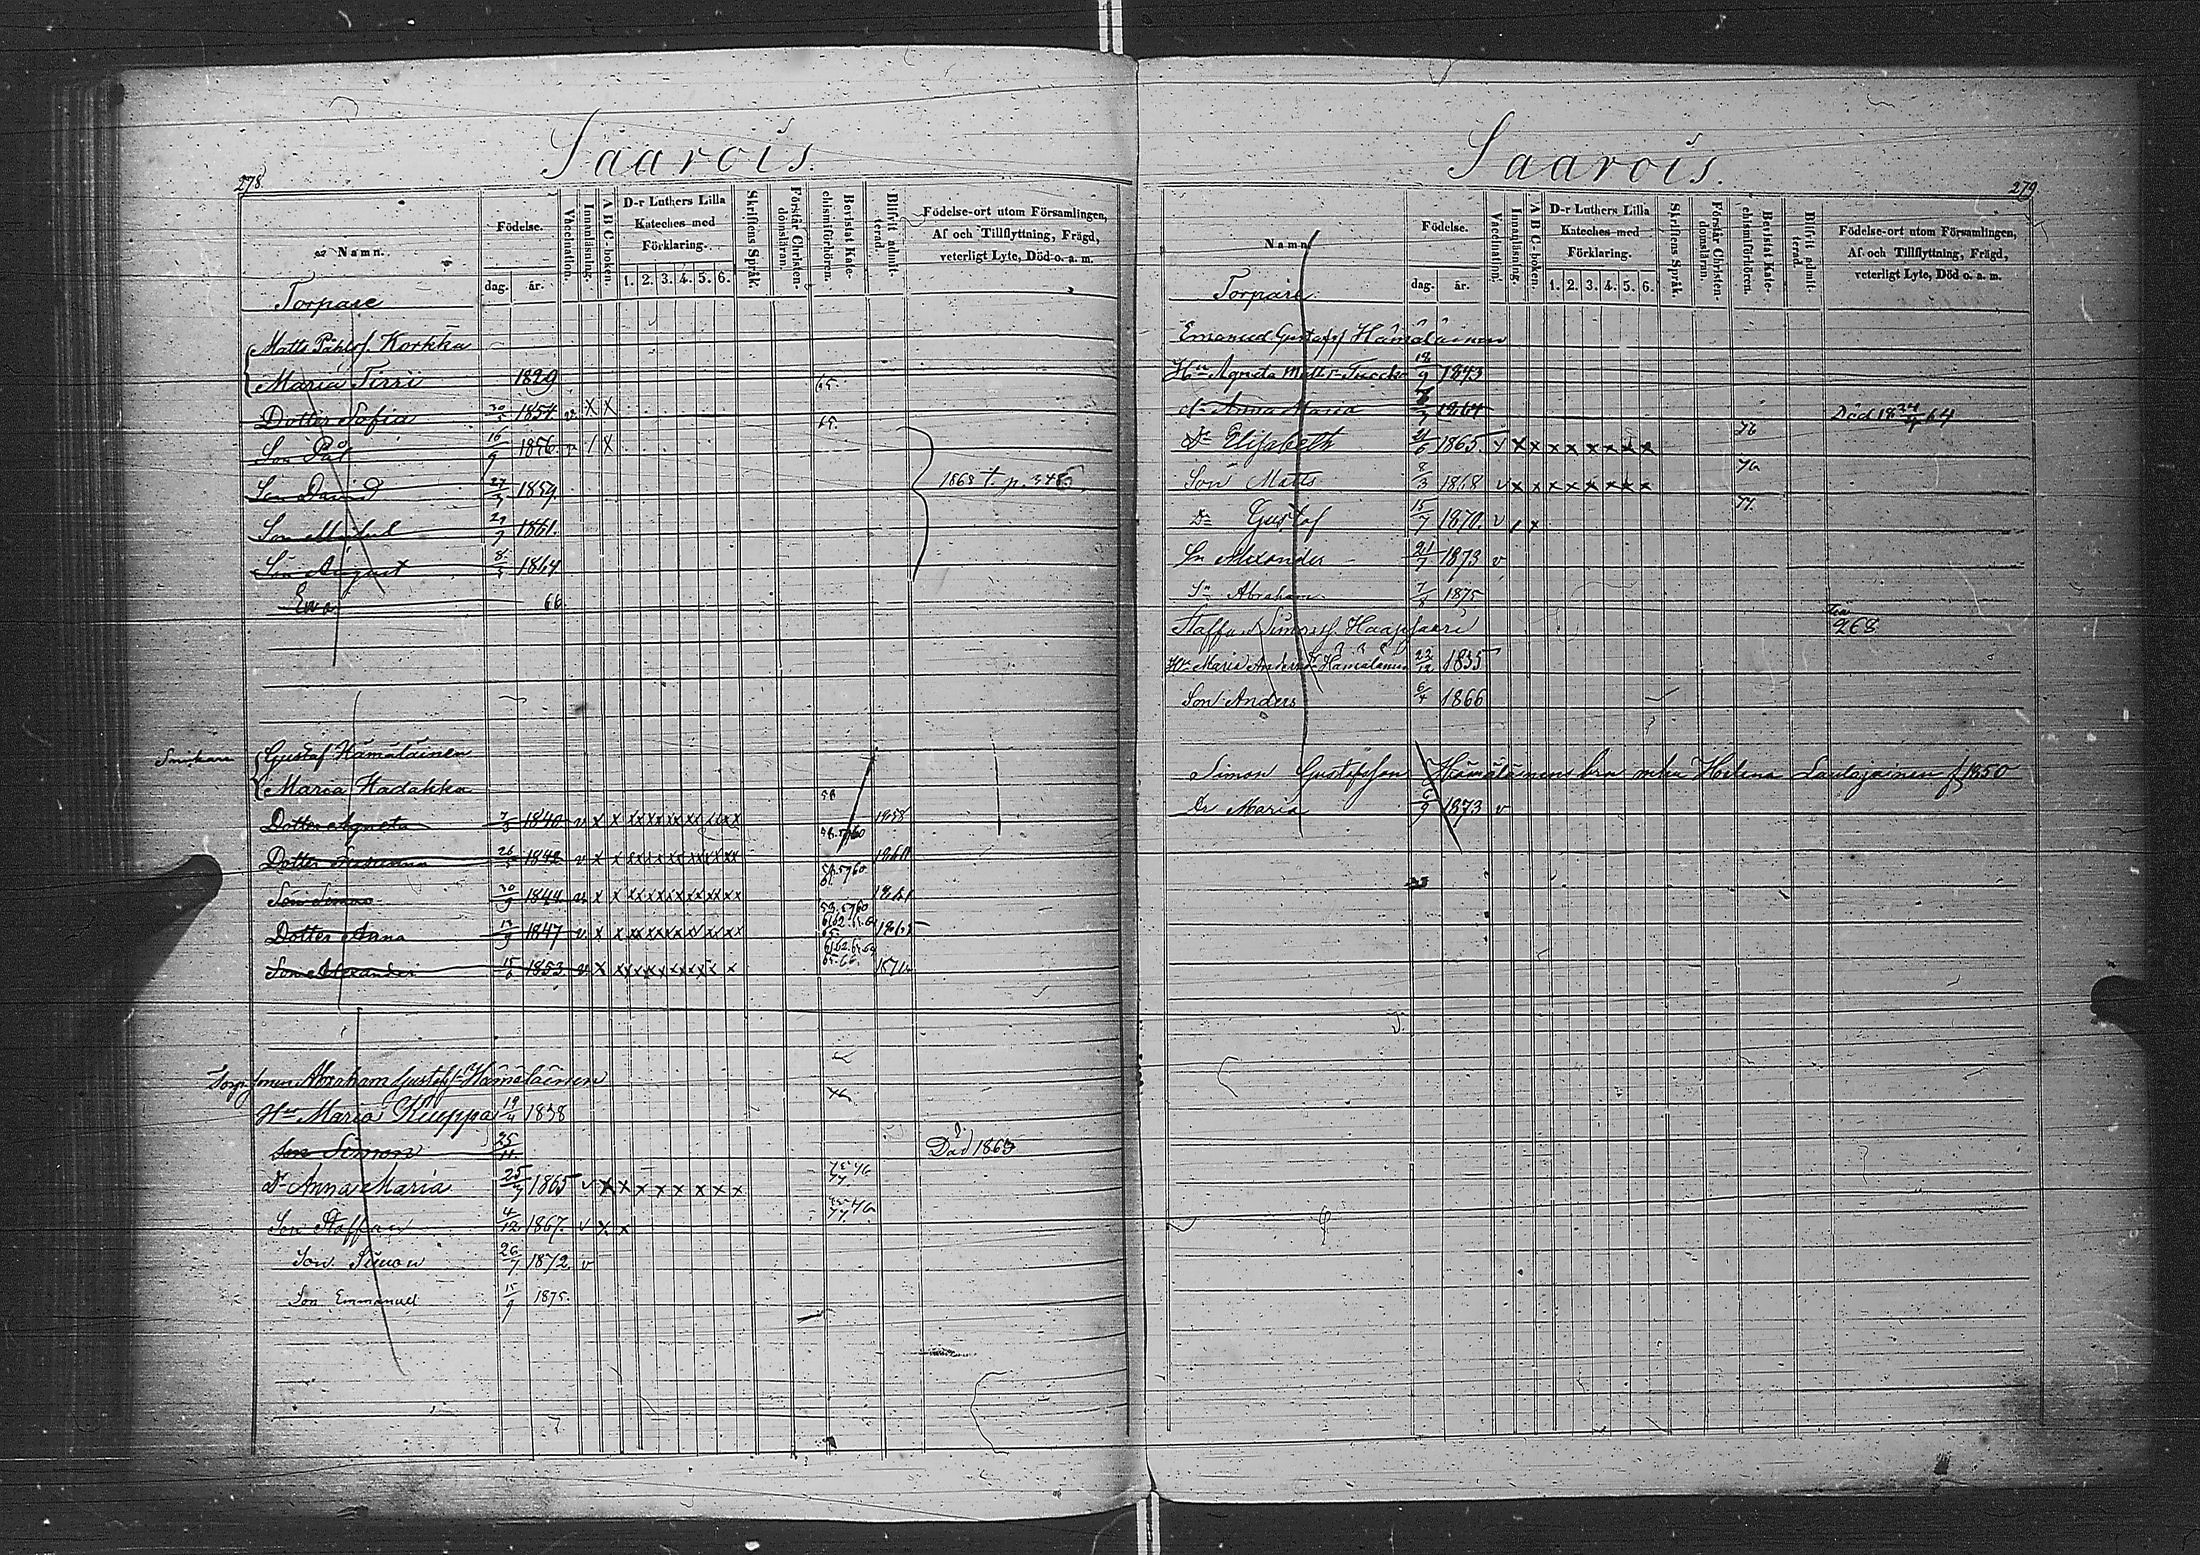 Saarois.
278.
Namn.
Födelse.
dag. år.
Vaccination.
Innanläsning.
A B C-boken.
D-r Luthers Lilla
Kateches med
Förklaring.
1. 2. 3. 4. 5. 6.
Skriftens Språk.
Förstår Christen-
domsläran.
Bevistat Kate-
chismiförhören.
Blifvit admit-
terad.
Födelse-ort utom Församlingen,
Af och Tillflyttning, Frägd,
veterligt Lyte, Död o. a. m.
Torpare
Matts Påhlsf. Korkka
Maria Tirri 1829 65.
Dotter Sofia 1854 X X 65.
Son Pål 16/9 1856 / X
Son David 27/7 1859 1868 t. p.
Son 1861.
Son August 1864
Ewa 66
Gustaf Hämäläinen
Maria Hadakka 58
Dotter Agneta 1840 v x x xx xx xx xx xx xx 1858
Dotter Susanna 26 1842 v x x xx xx xx xx xx xx 1860
Son Simon 30/9 1844 v x x xx xx xx xx xx xx 1861
Dotter Anna 1847 v x x xx xx xx xx xx xx 1865
Son Alexander 15/6 1853 v x x xx xx xx xx x x 1871
Abraham Gustafs Hämäläinen
Hu Maria Kiuppa 19/4 1838
Son Simon 25/11 Död 1865
Dr Anna Maria 25/7 1865 v x x x x x x x x 76 77
Son Staffan 4/12 1867. v x x 76 77.
Son Simon 26/7 1872 v
Son Emmanuel 15/9 1875.
Saarois.
279
Namn
Födelse.
dag. år.
Vaccination.
Innanläsning.
A B C-boken.
D-r Luthers Lilla
Kateches med
Förklaring.
1. 2. 3. 4. 5. 6.
Skriftens Språk.
Förstår Christen-
domsläran.
Bevistat Kate-
chismiförhören.
Blifvit admit-
terad.
Födelse-ort utom Församlingen,
Af och Tillflyttning, Frägd,
veterligt Lyte, Död o. a. m.
Torpare
Emanuel Gustafsf Hämäläinen
Hu Agneta Matts 18/9 1843
Dr Anna Maria 1864 Död 18 64
Dr Elisabeth 21/6 1865. v x x x x x x x x 76
Son Matts 8/3 1868 v x x x x x x x x 76
Dn Gustaf 15/7 1870. v / x 77.
Sn Alexander 21/7 1873 v
Sn Abraham 1875
Staffan Simonsf. Haapsaari 268
Hu Maria Andersd. Hämäläinen 22/12 1835
Son Anders 6/4 1866
Simon Gustafsson Hämäläinens Helena Laulajainen f 1850
Dr Maria 1873 v